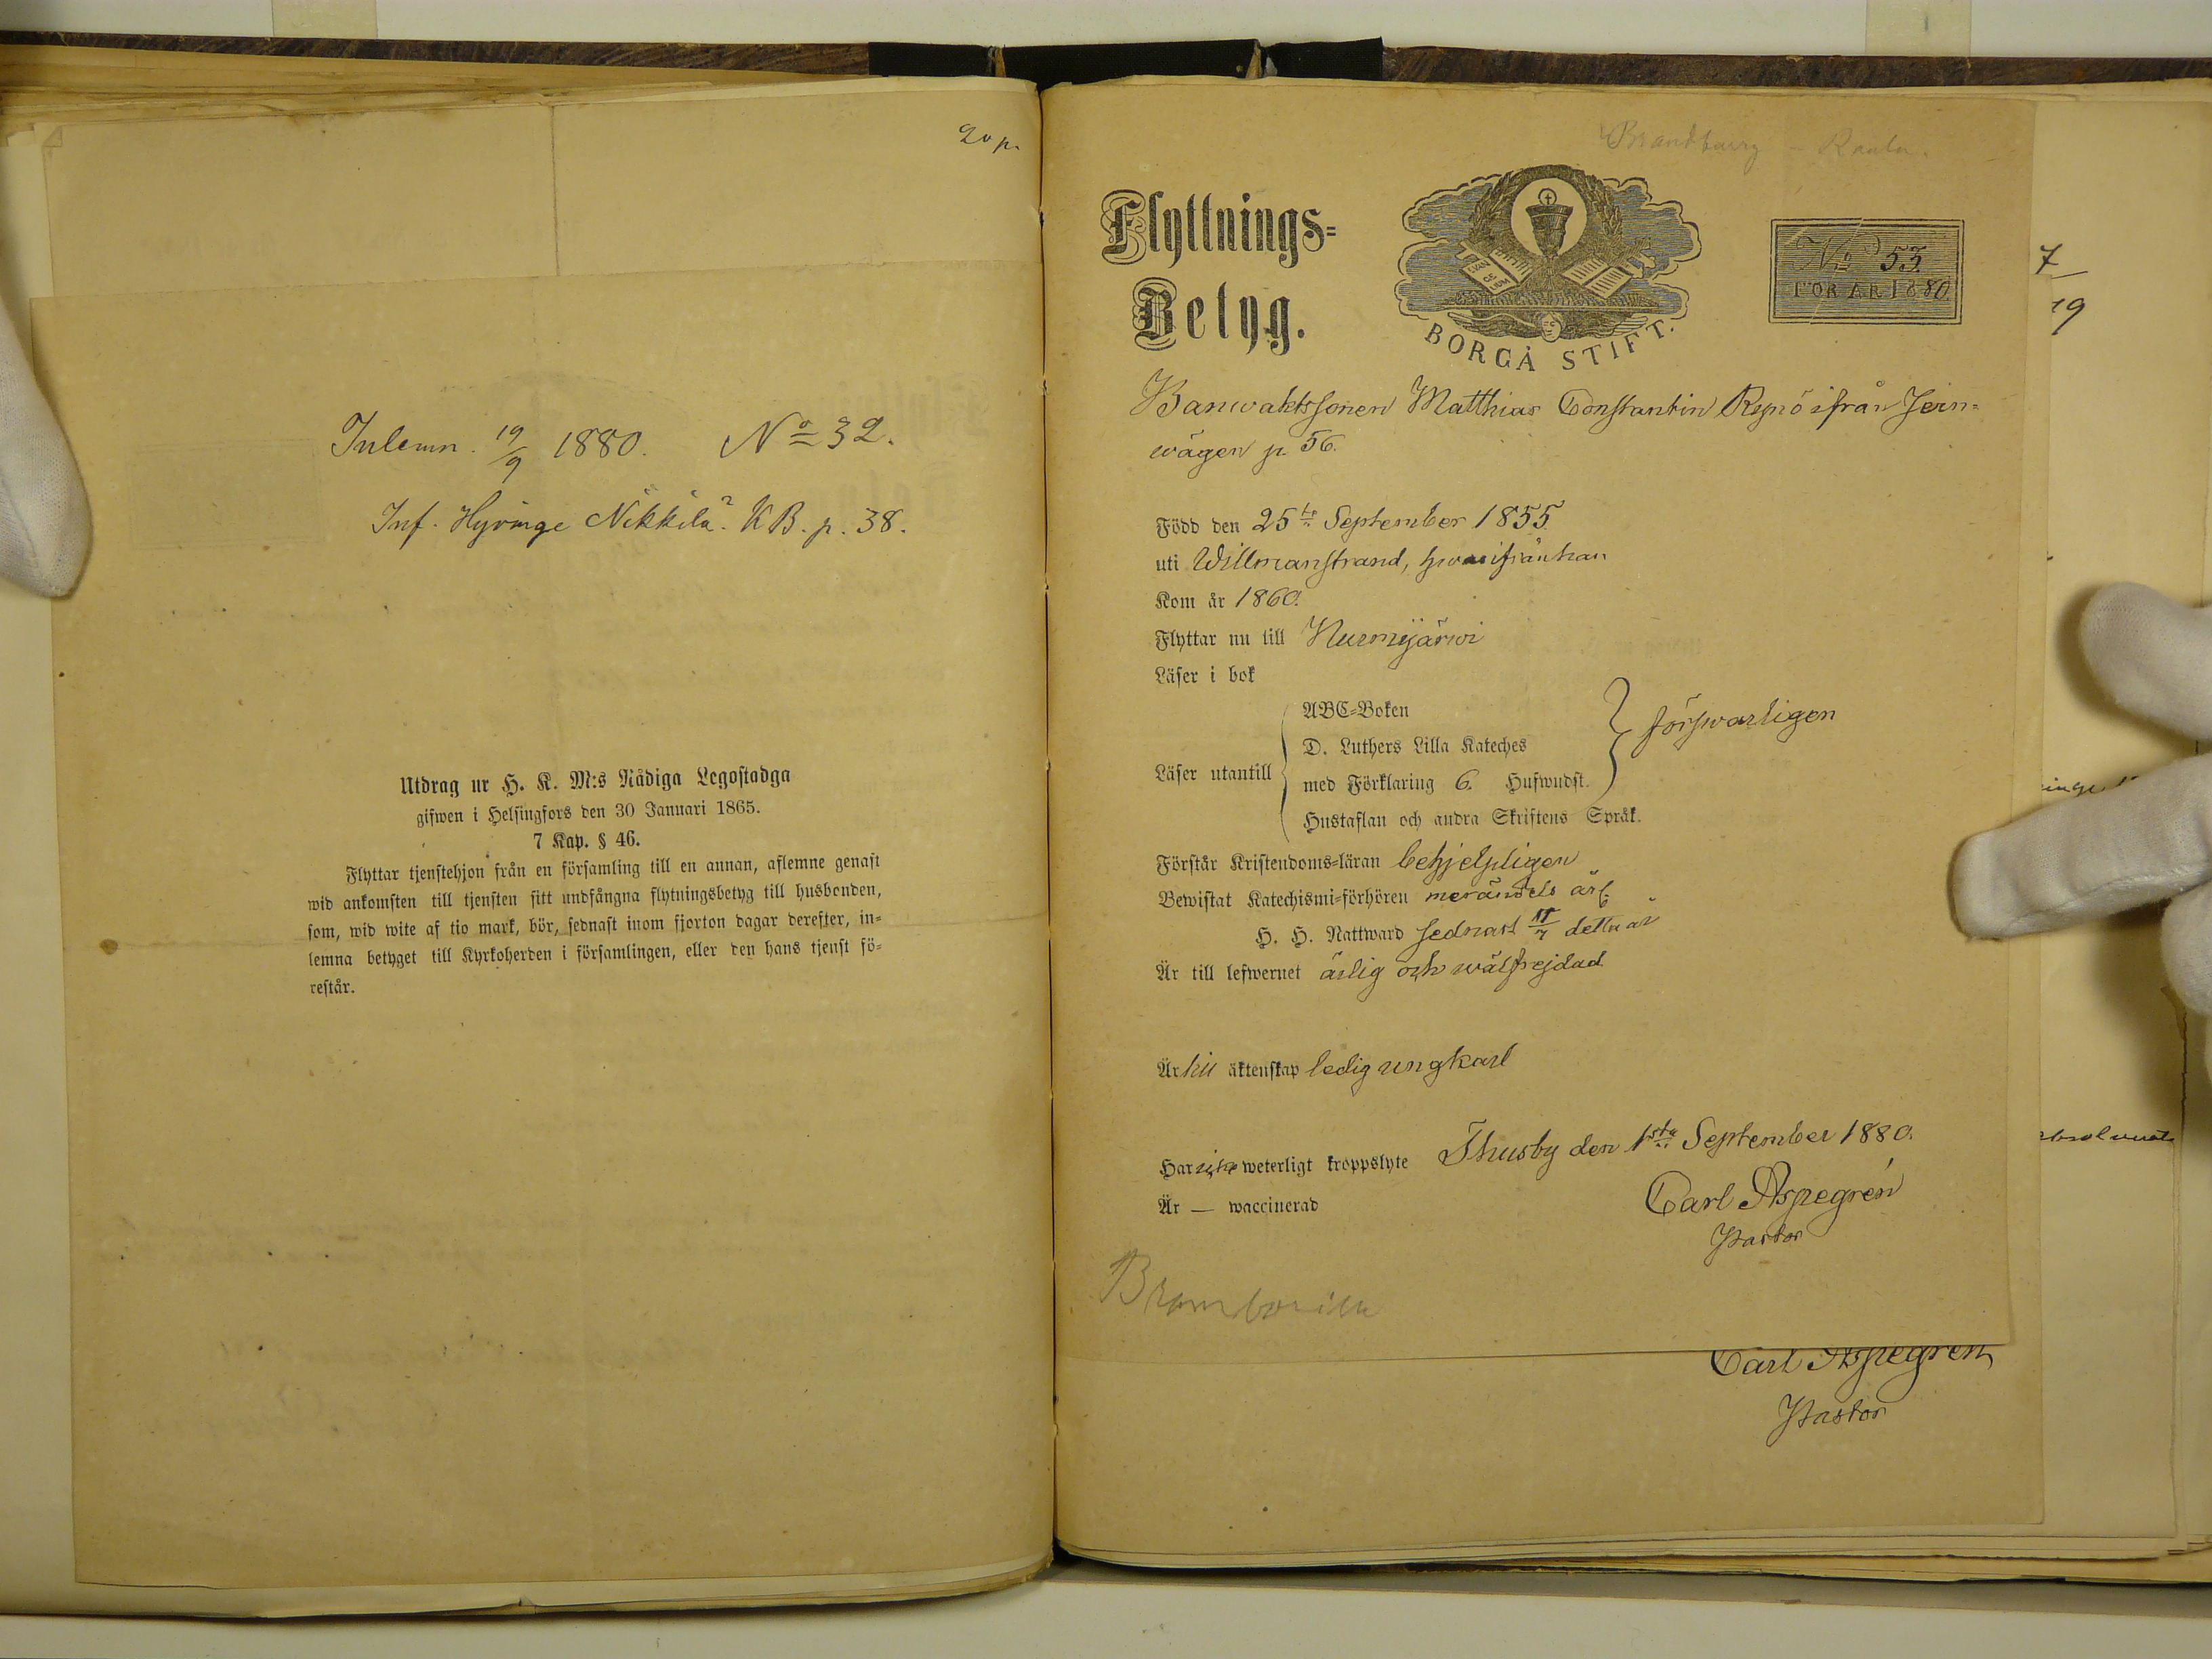 20 p.
Inlemn. 19/9 1880. No 32.
Inf. Hyvinge Nikkilä? KB. p. 38.
Utdrag ur H. K. M:s Nådiga Legostadga
gifwen i Helsingfors den 30 Januari 1865.
7 Kap. § 46.
Flyttar tjenstehjon från en församling till en annan, aflemne genast
wid ankomsten till tjensten sitt undfångna flytningsbetyg till husbonden,
som, wid wite af tio mark, bör, sednast inom fjorton dagar derefter, in=
lemna betyget till Kyrkoherden i församlingen, eller den hans tjenst fö=
restår.
Brandburg - 
Flyttnings=
Betyg.
EVAN
GE
LIUM
BORGÅ STIFT.
No 53
FÖR ÅR 1880
Banwaktssonen Matthias Constantin Repo ifrån Jern=
wägen p. 56.
Född den 25te September 1855
uti Willmanstrand, hwarifrån han
Kom år 1860.
Flyttar nu till Nurmijärwi
Läser i bok
Läser utantill
ABC=Boken
D. Luthers Lilla Kateches
med Förklaring 6. Hufwudst.
Hustaflan och andra Skriftens Språk.
förswarligen
Förstår Kristendoms=läran behjelpligen
Bewistat Katechismi=förhören merändels årl.
H. H. Nattward sednast 11/7 detta år
Är till lefwernet ärlig och wälfrejdad
Är till äktenskap ledig ungkarl
Thusby den 1sta September 1880.
Har icke weterligt kroppslyte
Är — waccinerad
Carl Aspegrén
Pastor
Carl Aspegrén
Pastor
7
19